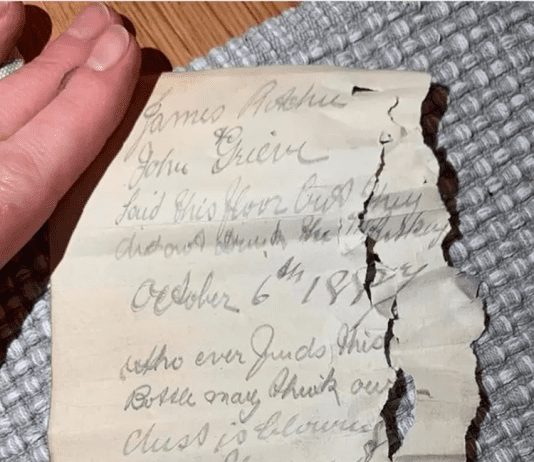 James Ritchie
John Grieve
Laid this floor but they
did not drink the whiskey
October 6th 1887
who ever finds this
Bottle may think our
dust is blowing